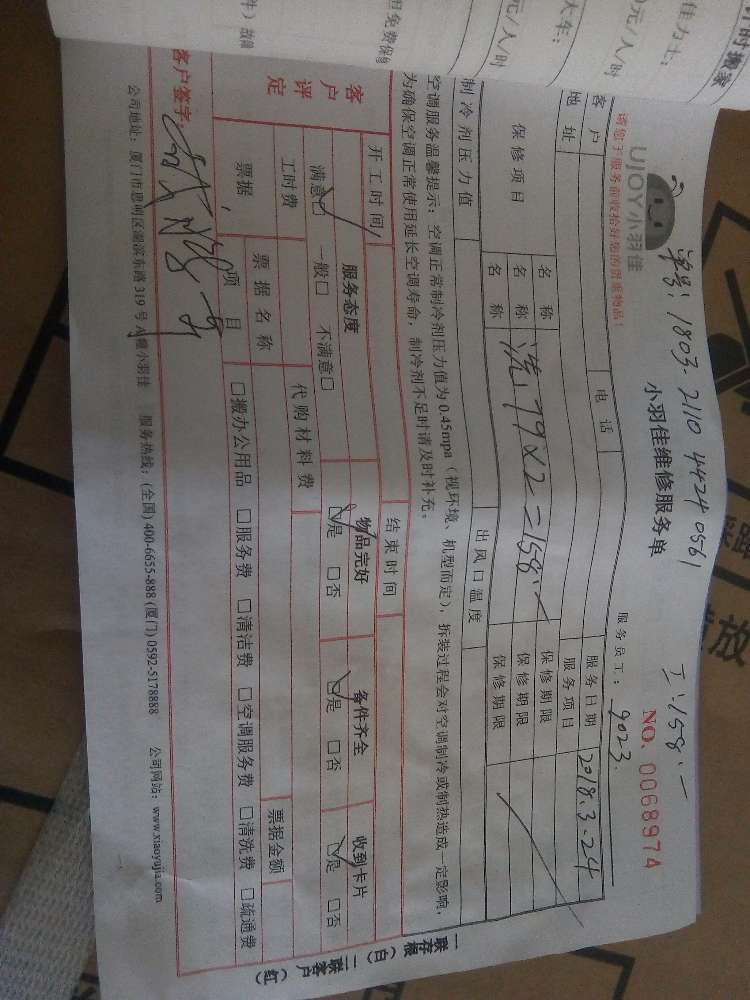 时搬家
佳力士:
0元/人/时
大车:
元/人/时
但免费保
件）故
单号: 1803-2110 4424 0561
工:158.一
UJOY小羽佳
小羽佳维修服务单
NO. 0068974
请您于服务前收拾好您的贵重物品！
服务员工: 9023.
客户
电话
服务日期
2018.3.24
地址
服务项目
保修项目
名称
保修期限
名称
洗: 79×2=158.一
保修期限
名称
保修期限
制冷剂压力值
出风口温度
空调服务温馨提示: 空调正常制冷剂压力值为0.45mpa（视环境、机型而定），拆装过程会对空调制冷或制热造成一定影响，
为确保空调正常使用延长空调寿命，制冷剂不足时请及时补充。
开工时间
结束时间
客户评定
服务态度
物品完好
备件齐全
收到卡片
满意☑ 一般□ 不满意□
☑是 □否
☑是 □否
☑是 □否
工时费
代购材料费
票据名称
票据金额
票据
项目
□搬办公用品 □服务费 □清洁费 □空调服务费 □清洗费 □疏通费
客户签字:
公司地址: 厦门市思明区湖滨东路319号A幢小羽佳 服务热线: (全国) 400-6655-888 (厦门) 0592-5178888 公司网站: www.xiaoyujia.com
一联存根（白）二联客户（红）
放